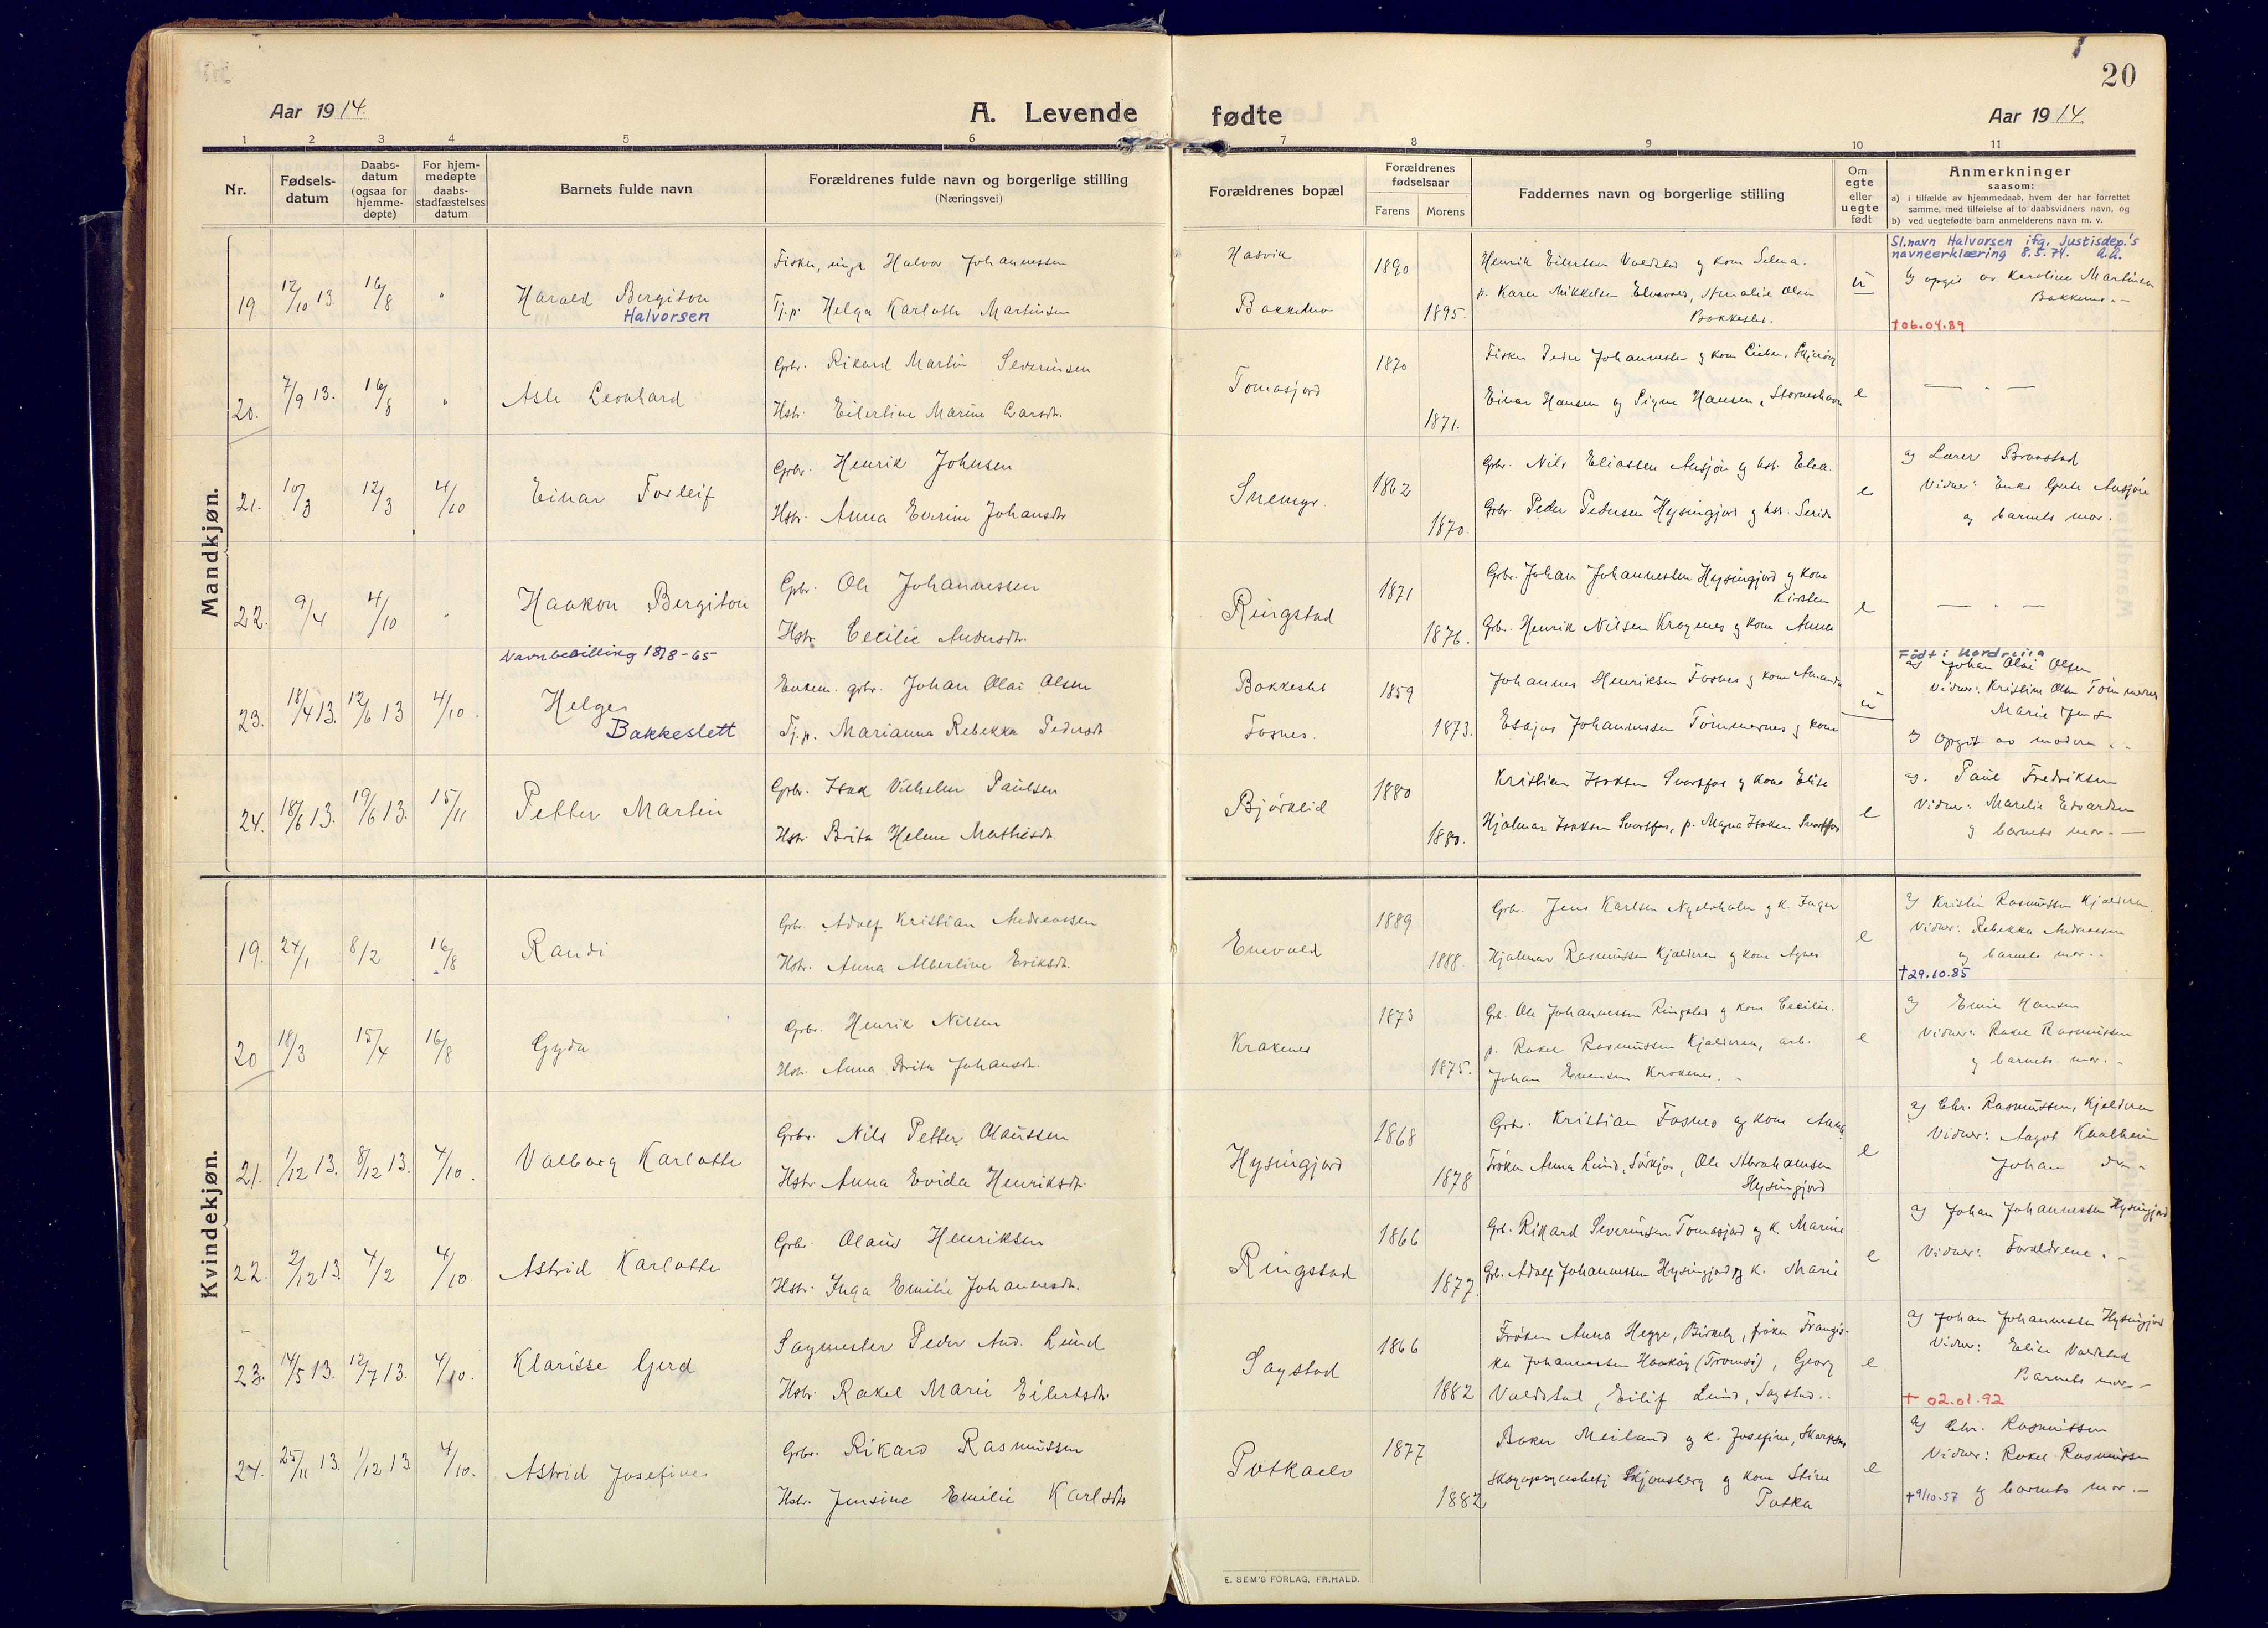 20
Aar 1914.
A. Levende
fødte
Aar 1914
1 2 3 4 5 6 7 8 9 10 11
Nr.
Fødsels-
datum
Daabs-
datum
(ogsaa for
hjemme-
døpte)
For hjem-
medøpte
daabs-
stadfæstelses
datum
Barnets fulde navn
Forældrenes fulde navn og borgerlige stilling
(Næringsvei)
Forældrenes bopæl
Forældrenes
fødselsaar
Farens Morens
Faddernes navn og borgerlige stilling
Om
egte
eller
uegte
født
Anmerkninger
saasom:
a) i tilfælde av hjemmedaab, hvem der har forrettet
samme, med tilføielse af to daabsvidners navn, og
b) ved uegtefødte barn anmelderens navn m. v.
Mandkjøn.
19. 12/10 13. 16/8 "
Harald Bergiton
Halvorsen
Fisker, ungk. Halvor Johannessen
Tj.p. Helga Karlotte Martinsen
Hasvik
Bakkeslet
1890
1895.
Henrik Eilertsen Valdstad og kone Selma.
p. Karen Mikkelsen Elvevoll, Amalie Olsen
Bakkeslet.
u
Sl.navn Halvorsen ifg. Justisdep.'s
navneerklæring 8.5.74.
Opgit av Karoline Martinsen
†06.04.89
20. 7/9 13. 16/8 "
Asle Leonhard
Grbr. Rikard Martin Severinsen
Hstr. Eilertine Marine Larsdtr.
Tomasjord
1870
1871.
Fisker Peder Johannessen og kone
Einar Hansen og Signe Hansen, Storneshavn
e
— " —
21. 10/3 12/3 4/10
Einar Torleif
Grbr. Henrik Johnsen
Hstr. Anna Evrine Johansdtr
Snemyr.
1862
1870.
Grbr. Nils Eliassen Ansjøn og hst. Elea.
Grbr. Peder Pedersen Hysingjord og hst.
e
af Lærer Braastad
Vidner: Enke Grete Ansjøn
og barnets mor.
22. 9/4 4/10 "
Haakon Bergiton
Grbr. Ole Johannessen
Hstr. Cecilie Andersdtr.
Ringstad
1871
1876.
Grbr. Johan Johannessen Hysingjord og kone
Kirsten
Grbr. Henrik Nilsen Kragnes og kone Anna
e
— " —
Navnbevilling 18/8-65
23. 18/4 13. 12/6 13 4/10.
Helge
Bakkeslett
Enkem. grbr. Johan Olai Olsen
Tj.p. Marianna Rebekka Pedersdtr
Bakkeslet
Fosnes.
1859
1873.
Johannes Henriksen Fosnes og kone Amanda
Esajas Johannessen Tømmernes og kone
u
Født i Nordreisa
af Johan Olai Olsen
Vidner: Kristine Olsen Tømmernes
Marie
Opgit av moderen.
24. 18/6 13. 19/6 13. 15/11
Petter Martin
Grbr. Isak Vilhelm Paulsen
Hstr. Brita Helene Mathisdtr
Bjørklid
1880
1880.
Kristian Isaksen Svartfos og kone Elise
Hjalmar Isaksen Svartfos, p. Magna Isaksen Svartfos
e
af. Paul Fredriksen
Vidner: Marelie Edvardsen
og barnets mor.—
Kvindekjøn.
19. 24/1 8/2 16/8
Randi
Grbr. Adolf Kristian Andreassen
Hstr. Anna Albertine Eriksdtr.
Enevold
1889
1888.
Grbr. Jens Karlsen Nyelvholm og k. Inger
Hjalmar Rasmussen Kjelderen og kone Agnes
e
af Kristin Rasmussen Kjelderen.
Vidner: Rebekka Andreassen
og barnets mor.
†29.10.85
20 18/3 15/4 16/8
Gyda
Grbr. Henrik Nilsen
Hstr. Anna Brita Johansdtr.
Krakenes
1873
1875.
Grb. Ole Johannessen Ringstad og kone Cecilie.
p. Rakel Rasmussen Kjelderen, arb.
Johan Evensen Krokenes.
e
af Emil Hansen
Vidner: Rakel Rasmussen
og barnets mor.
21. 1/12 13. 8/12 13. 4/10.
Valborg Karlotte
Grbr. Nils Petter Olaussen
Hstr. Anna Evida Henriksdtr.
Hysingjord
1868
1878
Grbr. Kristian Fosnes og kone Anna
Frøken Anna Lund, Sørkjos, Ole Abrahamsen
Hysingjord
e
af Chr. Rasmussen, Kjelderen
Vidner: Aagot Kaalheim
Johan
22. 2/12 13. 4/2 4/10.
Astrid Karlotte
Grbr. Olaus Henriksen
Hstr. Inga Emilie Johannesdtr.
Ringstad
1866
1877.
Grb. Rikard Severinsen Tomasjord og k. Marine
Grb. Adolf Johannessen Hysingjord og k. Marie
e
af Johan Johannessen Hysingjord
Vidner: Forældrene.
23. 14/5 13. 12/7 13. 4/10.
Klarisse Gerd
Sagmester Peder And. Lund
Hstr. Rakel Marie Eilertsdtr.
Sagstad
1866
1882
Frøken Anna Hegge, Birkely, frøken Frangis-
ka Johannessen Haakøy (Tromsø), Georg
Valdstad, Eilif Lund, Sagstad.
e
af Johan Johannessen Hysingjord
Vidner: Elise Valdstad
Barnets mor—
† 02.01.92
24. 25/11 13. 1/12 13 4/10.
Astrid Josefine
Grbr. Rikard Rasmussen
Hstr. Jensine Emilie Karlsdtr
Potkaelv
1877
1882
Baker Meiland og k. Josefine,
Skogopsynsbetj Skjønsberg og kone Stine
Potka
e
af Chr. Rasmussen
Vidner: Rakel Rasmussen
†9/10.57 og barnets mor.—
E. SEM'S FORLAG, FR.HALD.